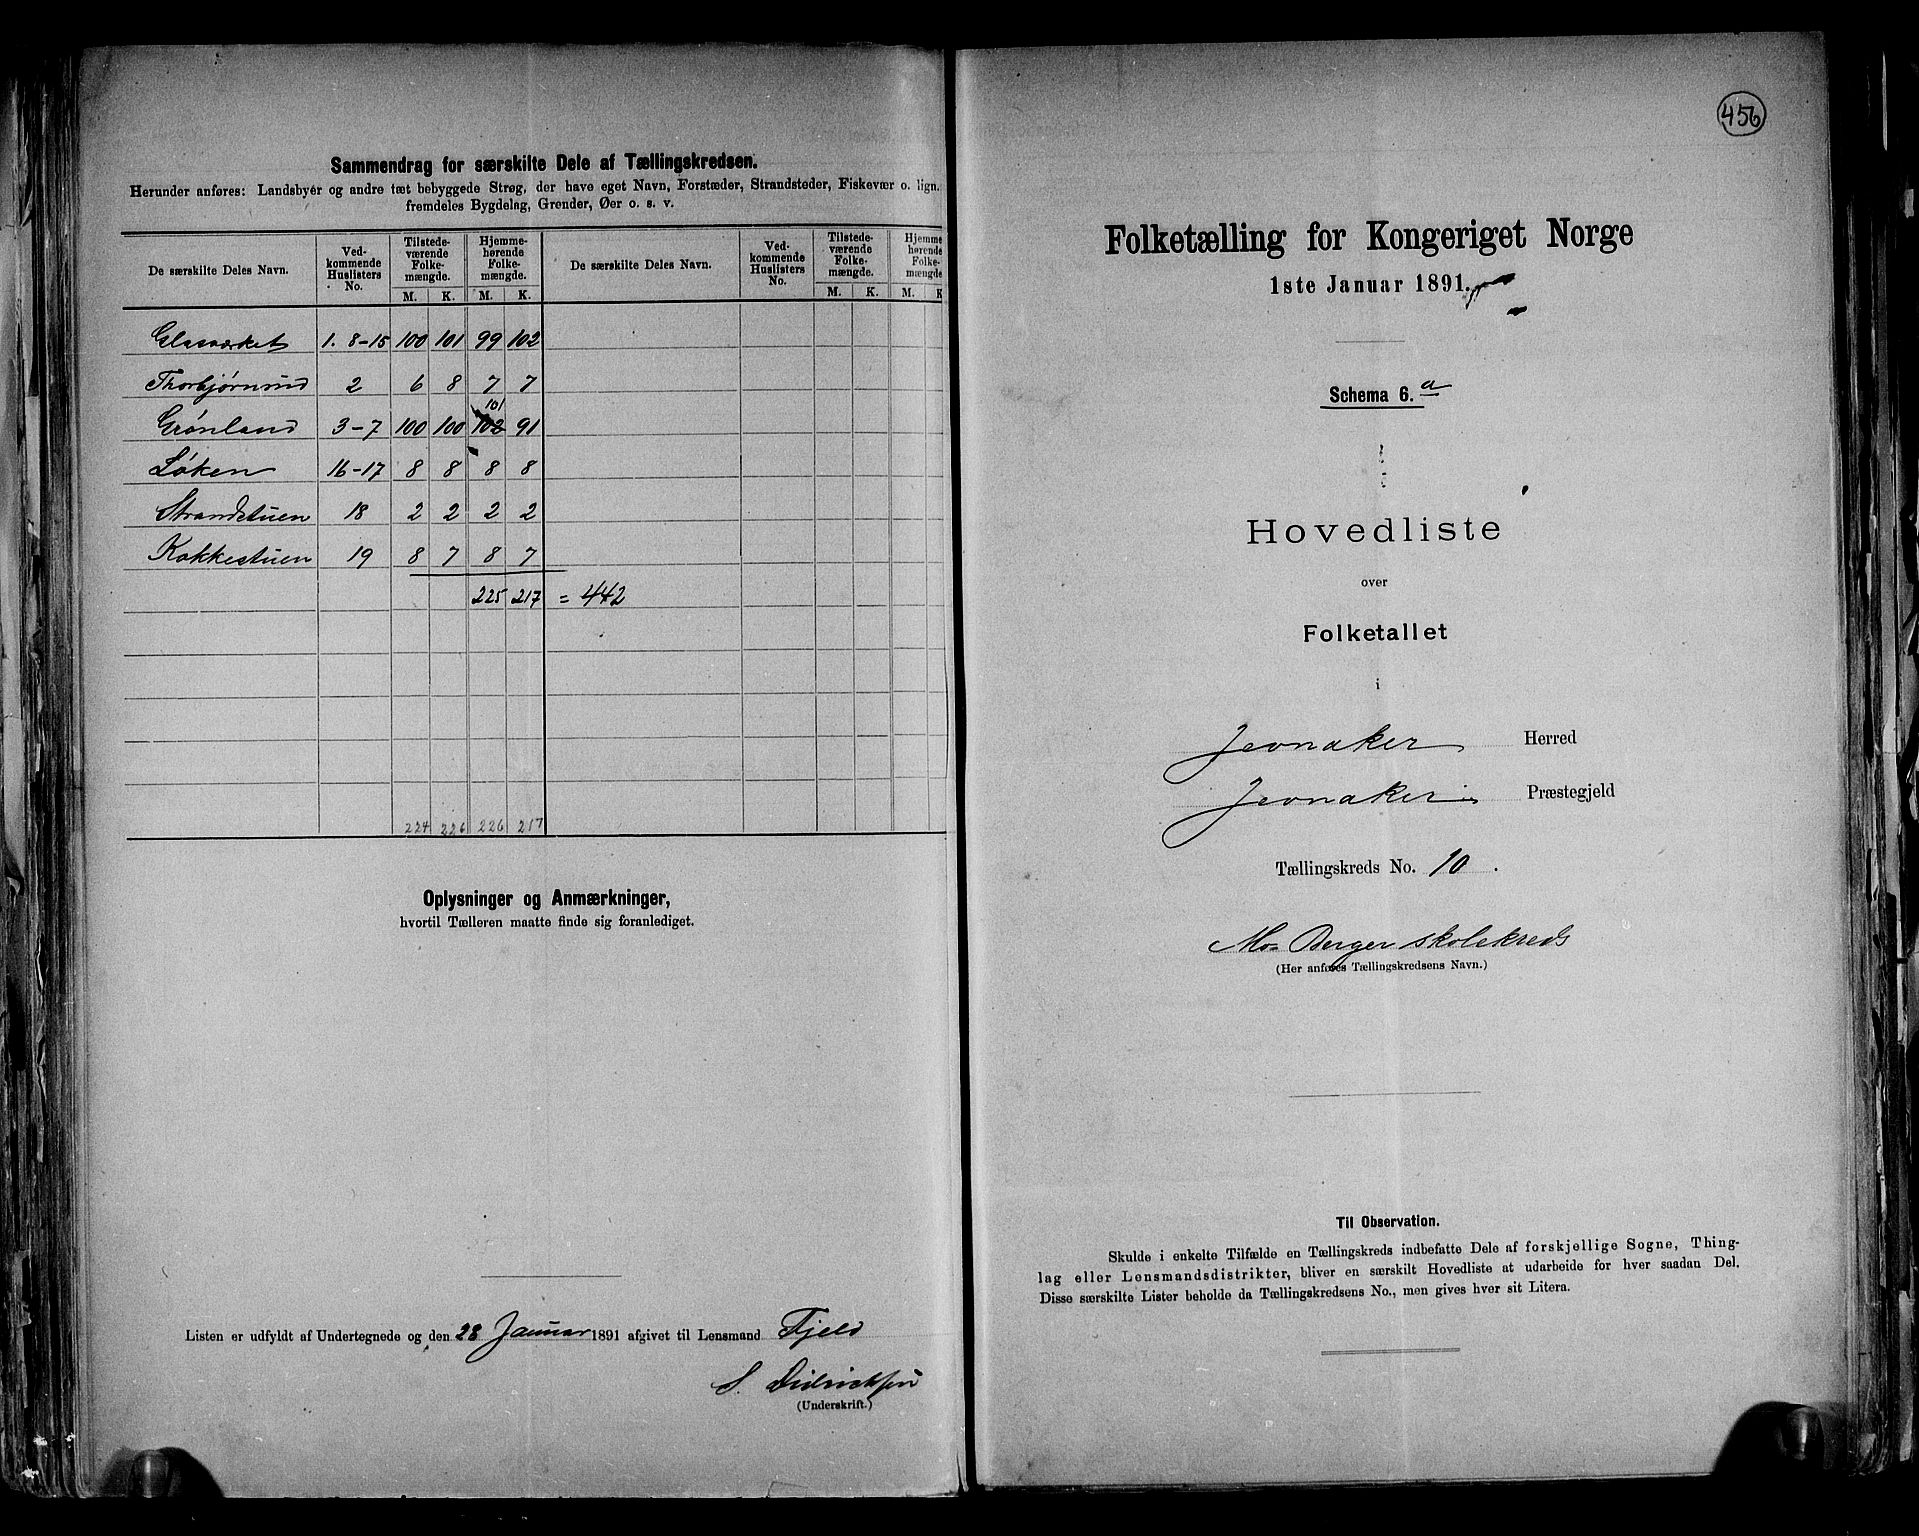 Sammendrag for særskilte Dele af Tællingskredsen.
Herunder anføres: Landsbyer og andre tæt bebyggede Strøg, der have eget Navn, Forstæder, Strandsteder, Fiskevær o. lign.
fremdeles Bygdelag, Grender, Øer o. s. v.
De særskilte Deles Navn. Ved-kommende Huslisters No. Tilstede-værende Folke-mængde. Hjemme-hørende Folke-mængde. De særskilte Deles Navn. Ved-kommende Huslisters No. Tilstede-værende Folke-mængde. Hjemme-hørende Folke-mængde
M. K. M. K. M. K. M. K
Glasværket 1. 8-15 100 101 99 102
Thorbjørnrud 2 6 8 7 7
101
Grønland 3-7 100 100 102 91
Løken 16-17 8 8 8 8
Strandstuen 18 2 2 2 2
Kokkestuen 19 8 7 8 7
225 217 = 442
224 226 226 217
Oplysninger og Anmærkninger,
hvortil Tælleren maatte finde sig foranlediget.
Listen er udfyldt af Undertegnede og den 28 Januar 1891 afgivet til Lensmand Fjeld
S. Didricksen
(Underskrift.)
456
Folketælling for Kongeriget Norge
1ste Januar 1891.
Schema 6. a
Hovedliste
over
Folketallet
i
Jevnaker Herred
Jevnaker Præstegjeld
Tællingskreds No. 10.
Mo= Berger skolekreds
(Her anføres Tællingskredsens Navn.)
Til Observation.
Skulde i enkelte Tilfælde en Tællingskreds indbefatte Dele af forskjellige Sogne, Thing-
lag eller Lensmandsdistrikter, bliver en særskilt Hovedliste at udarbeide for hver saadan Del.
Disse særskilte Lister beholde da Tællingskredsens No., men gives hver sit Litera.